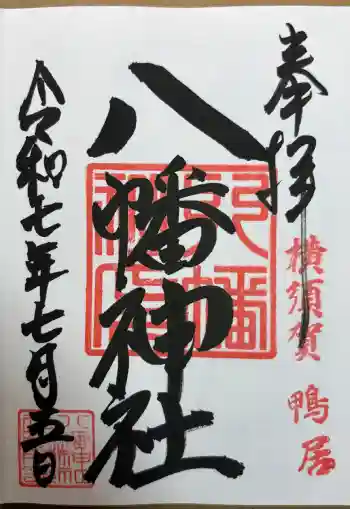 奉拝
横須賀 鴨居
八幡神社
令和七年七月五日